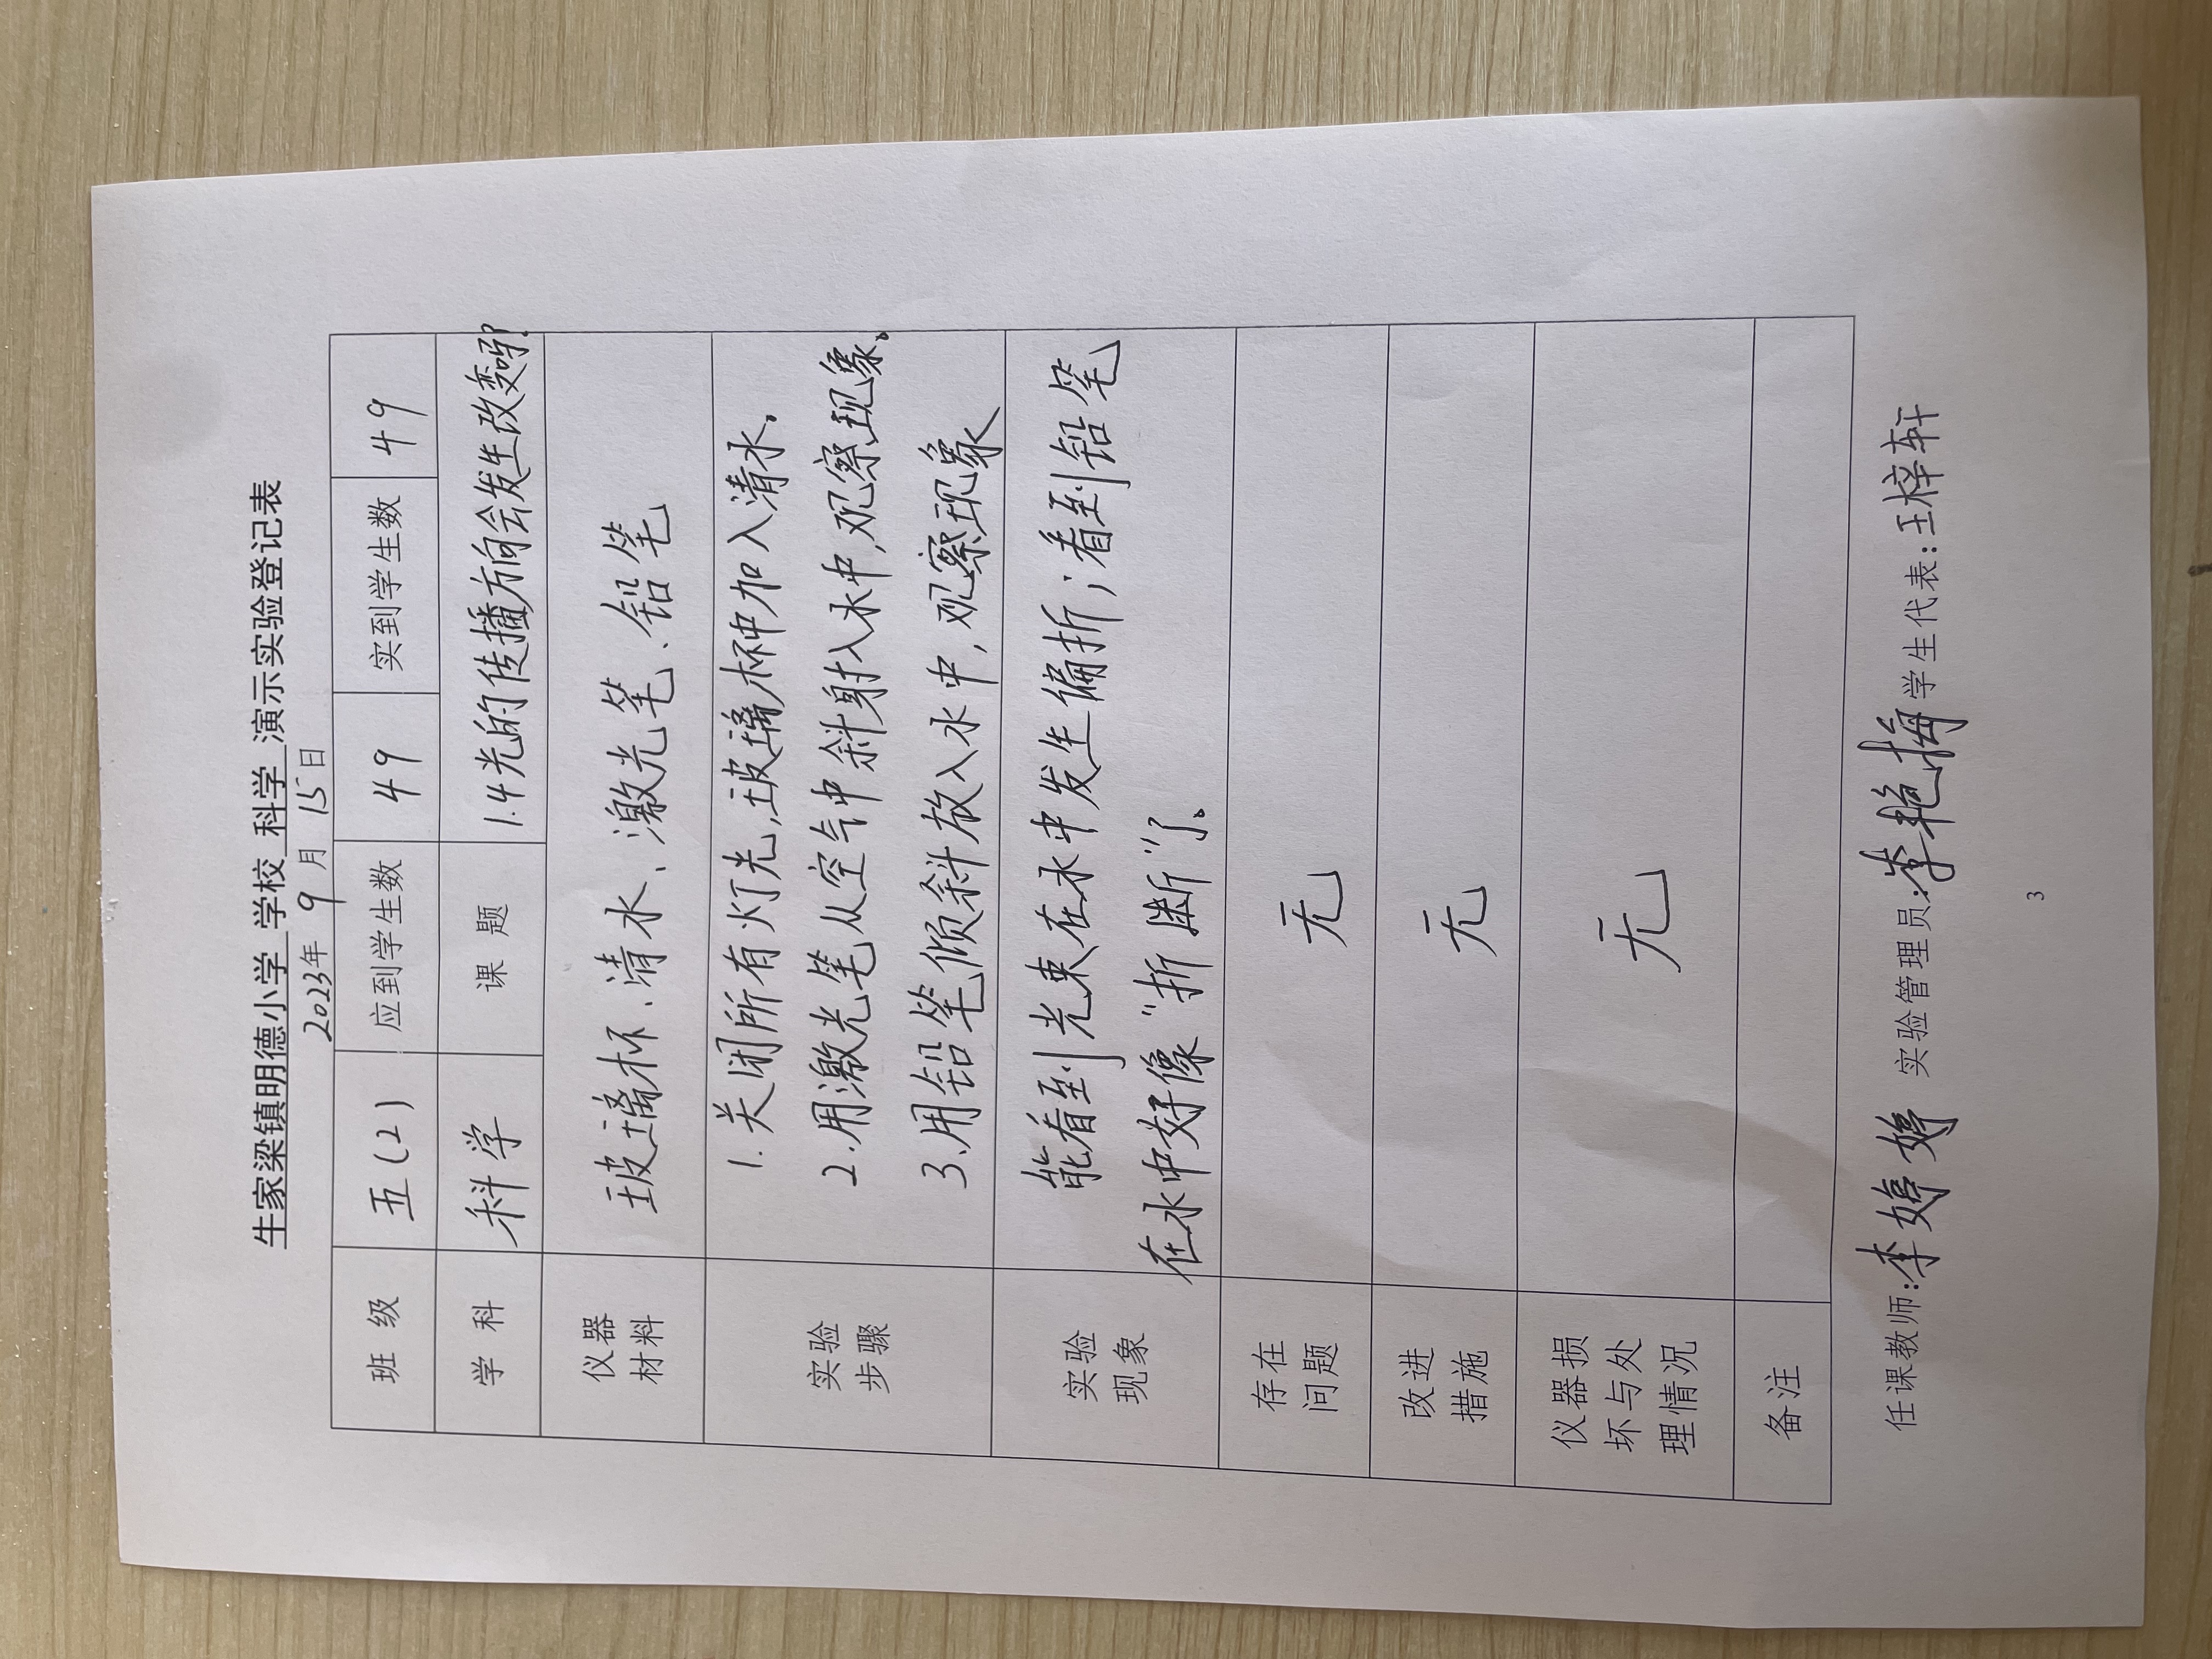 生家梁镇明德小学 学校 科学 演示实验登记表
2023年 9 月 15日
班 级 五(2) 应到学生数 49 实到学生数 49
学 科 科学 课 题 1.4光的传播方向会发生改变吗?
仪器
材料
玻璃杯、清水、激光笔、铅笔
实验
步骤
1.关闭所有灯光,玻璃杯中加入清水。
2.用激光笔从空气中斜射入水中,观察现象。
3.用铅笔倾斜放入水中,观察现象
实验
现象
能看到光束在水中发生偏折;看到铅笔
在水中好像"折断"了。
存在
问题
无
改进
措施
无
仪器损
坏与处
理情况
无
备注
任课教师:李婷婷 实验管理员:李艳梅 学生代表:王梓轩
3